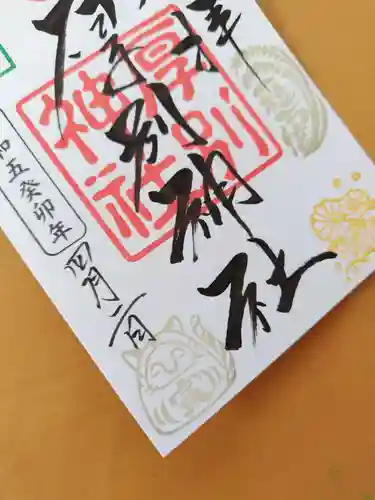 拝
厚別神社
厚別
神社
和五癸卯年
四月二日